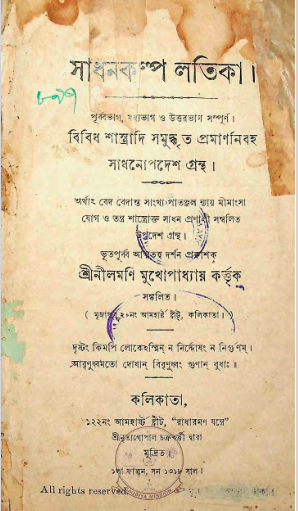 সাধনকল্প লতিকা।
পূর্ব্বভাগ, মধ্যভাগ ও উত্তরভাগ সম্পূর্ণ।
বিবিধ শাস্ত্রাদি সমুদ্ধৃত প্রমাণনিবহ
সাধনোপদেশ গ্রন্থ।
অর্থাৎ বেদ বেদান্ত সাংখ্য পাতঞ্জল ন্যায় মীমাংসা
যোগ ও তন্ত্র শাস্ত্রোক্ত সাধন প্রণালী সম্বলিত
উপদেশ গ্রন্থ।
ভূতপূর্ব্ব আত্মতত্ত্ব দর্শন প্রকাশক
শ্রীনীলমণি মুখোপাধ্যায় কর্ত্তৃক
সঙ্কলিত।
( মৃজাপুর ২০নং আমহার্ষ্ট ষ্ট্রীট, কলিকাতা। )
দৃষ্টং কিমপি লোকেহস্মিন্ ন নির্দ্দোষং ন নির্গুণম্।
আবৃণুধ্বমতো দোষান্ বিবৃণুধ্বং গুণান্ বুধাঃ॥
কলিকাতা,
১২২নং আমহার্ষ্ট ষ্ট্রীট, "রাধারমণ যন্ত্রে"
শ্রীনৃত্যগোপাল চক্রবর্ত্তী দ্বারা
মুদ্রিত।
১লা ফাল্গুন, সন ১৩১৮ সাল।
All rights reserved.